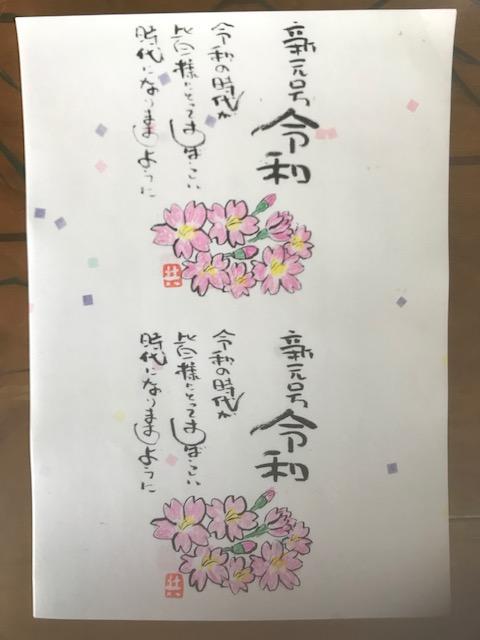 新元号
令和
令和の時代が
皆様にとってすばらしい
時代になりますように
新元号
令和
令和の時代が
皆様にとってすばらしい
時代になりますように